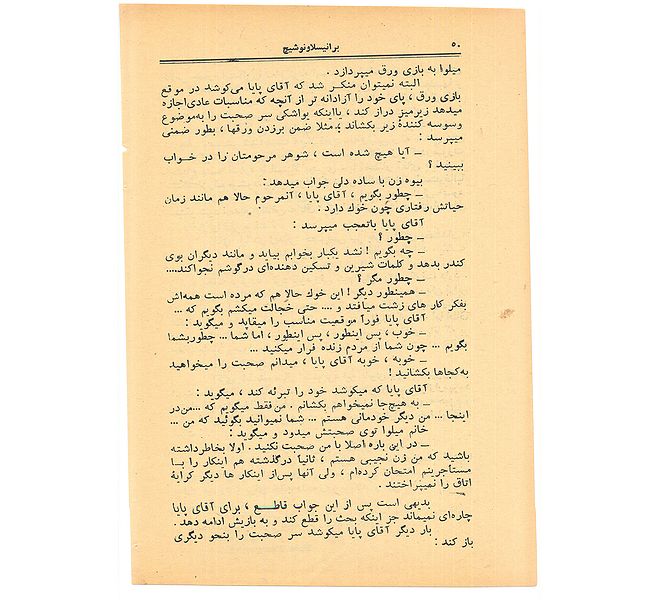 ۵۰
برانیسلاونوشیچ
میلوا به بازی ورق میپردازد .
البته نمیتوان منکر شد که آقای پایا میکوشد در موقع
بازی ورق ، پای خود را آزادانه تر از آنچه که مناسبات عادی‌اجازه
میدهد زیرمیز دراز کند ، یااینکه یواشکی سر صحبت را به‌موضوع
وسوسه کنندهٔ زیر بکشاند ؛ مثلا ضمن برزدن ورقها ، بطور ضمنی
میپرسد :
ــ آیا هیچ شده است ، شوهر مرحومتان را در خواب
ببینید ؟
بیوه زن با ساده دلی جواب میدهد :
ــ چطور بگویم ، آقای پایا ، آنمرحوم حالا هم مانند زمان
حیاتش رفتاری چون خوك دارد .
آقای پایا باتعجب میپرسد :
ــ چطور ؟
ــ چه بگویم ! نشد یکبار بخوابم بیاید و مانند دیگران بوی
کندر بدهد و کلمات شیرین و تسکین دهنده‌ای درگوشم نجواکند....
ــ چطور مگر ؟
ــ همینطور دیگر ! این خوك حالا هم که مرده است همه‌اش
بفکر کار های زشت میافتد و .... حتی خجالت میکشم بگویم که ...
آقای پایا فوراً موقعیت مناسب را میقاپد و میگوید :
ــ خوب ، پس اینطور ، پس اینطور ، اما شما ... چطوربشما
بگویم ... چون شما از مردم زنده فرار میکنید ...
ــ خوبه ، خوبه آقای پایا ، میدانم صحبت را میخواهید
به‌کجاها بکشانید !
آقای پایا که میکوشد خود را تبرئه کند ، میگوید :
ــ به هیچ‌جا نمیخواهم بکشانم . من‌فقط میگویم که ...من‌در
اینجا ... من دیگر خودمانی هستم ... شما نمیتوانید بگوئید که من ...
خانم میلوا توی صحبتش میدود و میگوید :
ــ در این باره اصلا با من صحبت نکنید . اولا بخاطرداشته
باشید که من زن نجیبی هستم ، ثانیاً درگذشته هم اینکار را بــا
مستأجرینم امتحان کرده‌ام ، ولی آنها پس‌از اینکار ها دیگر کرایهٔ
اتاق را نمیپراختند .
بدیهی است پس از این جواب قاطــع ، برای آقای پایا
چاره‌ای نمیماند جز اینکه بحث را قطع کند و به بازیش ادامه دهد .
بار دیگر آقای پایا میکوشد سر صحبت را بنحو دیگری
باز کند :